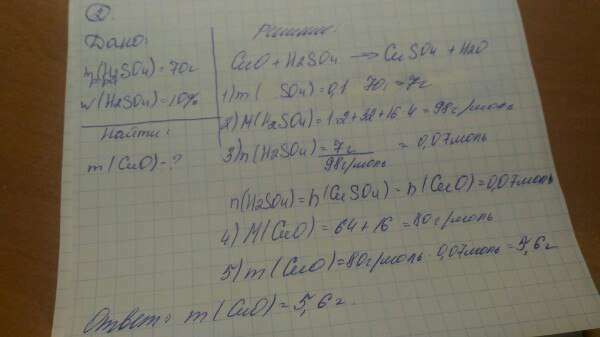 2
Дано:
m(H2SO4)=70г
w(H2SO4)=10%
Найти:
m(CuO)-?
Решение:
CuO+H2SO4 → CuSO4+H2O
1) m( SO4)=0,1 70г=7г
2) M(H2SO4)=1·2+32+16·4=98г/моль
3) n(H2SO4)=7г/98г/моль = 0,07моль
n(H2SO4)=n(CuSO4)=n(CuO)=0,07моль
4) M(CuO)=64+16=80г/моль
5) m(CuO)=80г/моль·0,07моль=5,6г
Ответ: m(CuO)=5,6г.